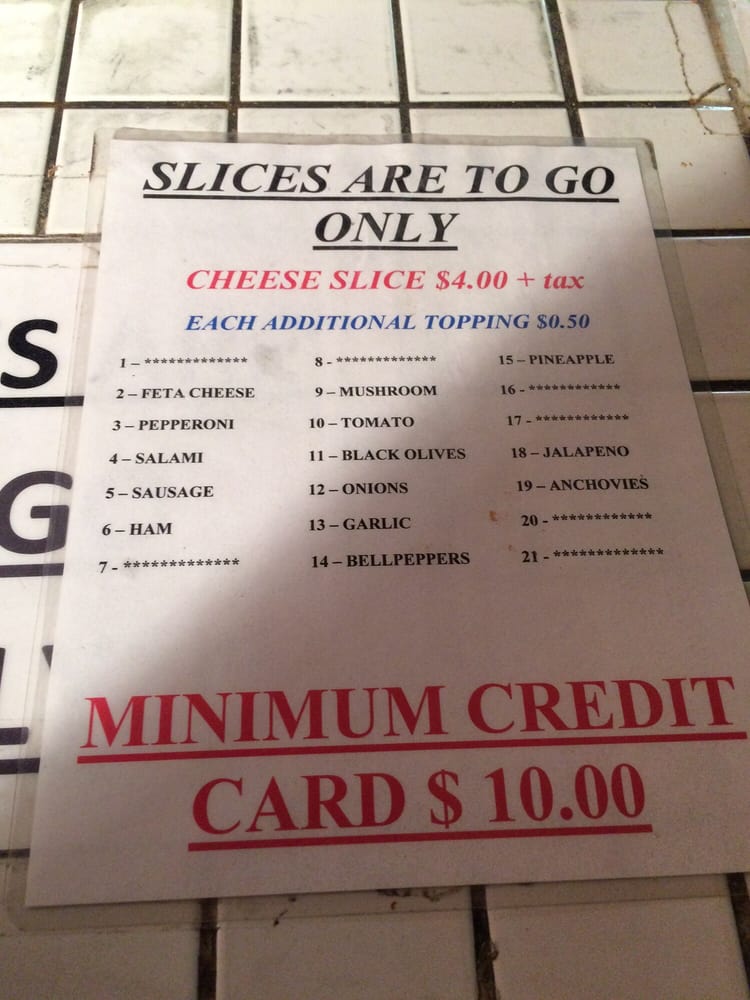 SLICES ARE TO GO
ONLY
CHEESE SLICE $4.00 + tax
EACH ADDITIONAL TOPPING $0.50
1 – *************
2 – FETA CHEESE
3 – PEPPERONI
4 – SALAMI
5 – SAUSAGE
6 – HAM
7 - *************
8 - *************
9 – MUSHROOM
10 – TOMATO
11 – BLACK OLIVES
12 – ONIONS
13 – GARLIC
14 – BELLPEPPERS
15 – PINEAPPLE
16 - ************
17 - ************
18 – JALAPENO
19 – ANCHOVIES
20 - *************
21 - **************
MINIMUM CREDIT
CARD $ 10.00
S
G